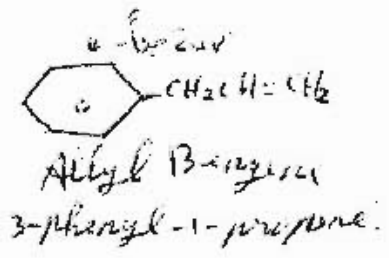 CH2CH=CH2
Allyl Benzene
3-phenyl-1-propene.